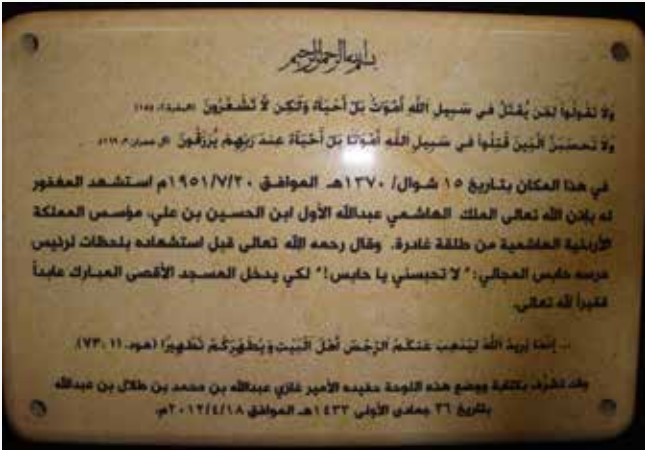 بسم الله الرحمن الرحيم
وَلَا تَقُولُوا لِمَن يُقْتَلُ فِي سَبِيلِ اللَّهِ أَمْوَاتٌ بَلْ أَحْيَاءٌ وَلَكِن لَّا تَشْعُرُونَ (البقرة ٢، ١٥٤)
وَلَا تَحْسَبَنَّ الَّذِينَ قُتِلُوا فِي سَبِيلِ اللَّهِ أَمْوَاتًا بَلْ أَحْيَاءٌ عِندَ رَبِّهِمْ يُرْزَقُونَ (آل عمران ٣، ١٦٩)
في هذا المكان بتاريخ ١٥ شوال/ ١٣٧٠هـ الموافق ١٩٥١/٧/٢٠م استشهد المغفور
له بإذن الله تعالى الملك الهاشمي عبدالله الأول ابن الحسين بن علي، مؤسس المملكة
الأردنية الهاشمية من طلقة غادرة. وقال رحمه الله تعالى قبل استشهاده بلحظات لرئيس
حرسه حابس المجالي: "لا تحبسني يا حابس!" لكي يدخل المسجد الأقصى المبارك عابداً
فقيراً لله تعالى.
... إِنَّمَا يُرِيدُ اللَّهُ لِيُذْهِبَ عَنكُمُ الرِّجْسَ أَهْلَ الْبَيْتِ وَيُطَهِّرَكُمْ تَطْهِيرًا (هود، ١١: ٧٣).
وقد تشرّف بكتابة ووضع هذه اللوحة حفيده الأمير غازي عبدالله بن محمد بن طلال بن عبدالله
بتاريخ ٢٦ جمادى الأولى ١٤٣٣هـ الموافق ٢٠١٢/٤/١٨م.